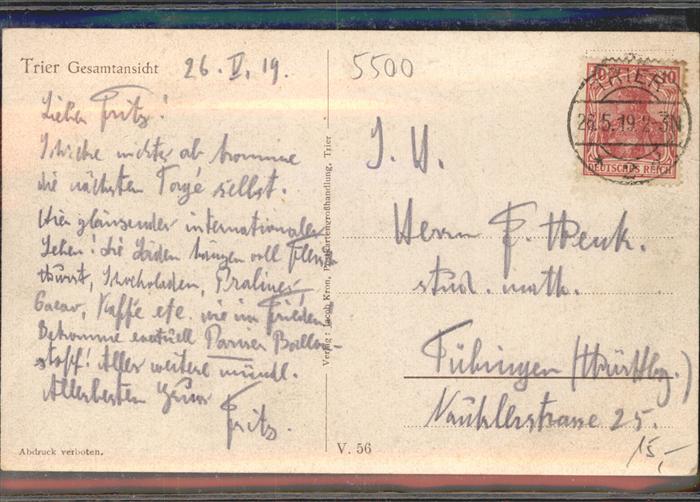 Trier Gesamtansicht
26. V. 19.
Lieber Fritz!
Schicke nichts ab komme
die nächsten Tage selbst.
Hier glänzender internationaler
Leben! die Läden hängen voll
wurst, Schocholaden, Praline,
Cacao, Kaffe etc. wie im Frieden
Bekomme eventuell Pariser
stoff! Alles weitere mündl.
Allerbesten Gruss
Fritz.
Abdruck verboten.
Verlag: Jacob Kron, Postkartengroßhandlung, Trier
V. 56
5500
TRIER
26.5.19.2-3N
10 10
DEUTSCHES REICH
Herrn F.
stud. math.
Tübingen (Württbg.)
25.
15,-